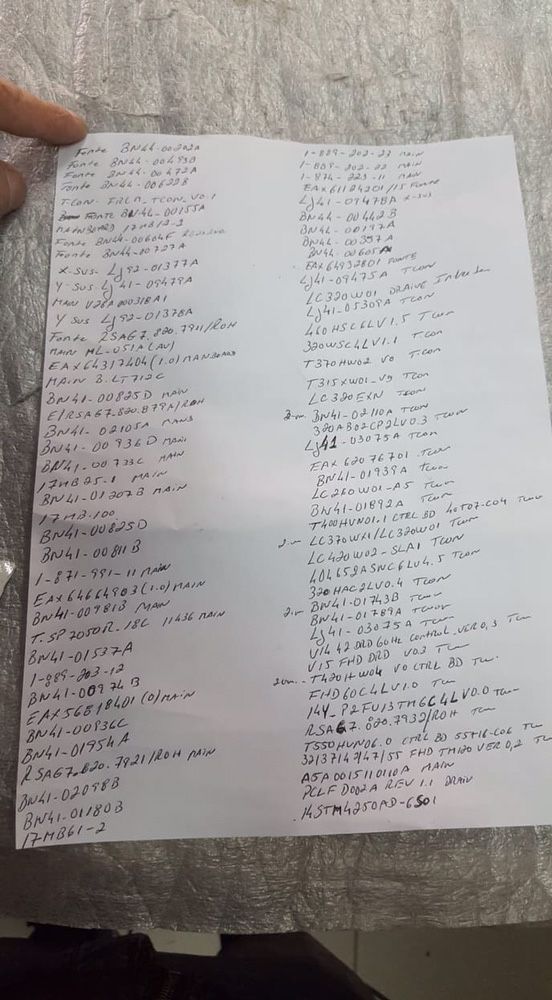 Fonte BN44-00202A
Fonte BN44-00493B
Fonte BN44-00472A
Fonte BN44-00622B
T.CON- FRCM_TCON_V0.1
FONTE BN44-00155A
MAINBOARD 17MB12-2
Fonte BN44-00604F
Fonte BN44-00727A
X-SUS- Lj92-01377A
Y-SUS- Lj41-09479A
MAIN V28A000318A1
Y SUS Lj92-01378A
Fonte RSAG7.820.7911/ROH
MAIN ML-051A (AV)
EAX64317404(1.0) MAINBOARD
MAIN B.LT712C
BN41-00825D MAIN
E/RSAG7.820.879A/ROH
BN41-02105A MAIN
BN41-00936D MAIN
BN41-00733C MAIN
17MB25-1 MAIN
BN41-01207B MAIN
17MB-100
BN41-00825D
BN41-00811B
1-871-991-11 MAIN
EAX64664903(1.0) MAIN
BN41-00981B MAIN
T.SP7050R-18C 11436 MAIN
BN41-01537A
1-889-203-12
BN41-00974B
EAX56818401(0) MAIN
BN41-00936C
BN41-01954A
RSAG7.820.7921/ROH MAIN
BN41-02098B
BN41-01180B
17MB61-2
1-889-202-23 MAIN
1-889-202-22 MAIN
1-874-223-11 MAIN
EAX61124201/15 FONTE
Lj41-09478A X-SUS
BN44-00442B
BN44-00197A
BN44-00357A
BN44-00605A
EAX64932801 FONTE
Lj41-09475A TCON
LC320W01 DRAINE
Lj41-05309A TCON
460HSC6LV1.5 TCON
320WSC4LV1.1 TCON
T370HW02 V0 TCON
T315XW01-V9 TCON
LC320EXN TCON
BN41-02110A TCON
320AB02CP2LV0.3 TCON
Lj41-03075A TCON
EAX62076701 TCON
BN41-01939A TCON
LC260W01-A5 TCON
BN41-01892A TCON
T400HVN01.1 CTRL BD 40T07-C04 TCON
LC370WX1/LC320W01 TCON
LC420W02-SLA1 TCON
404652ASNC6LV4.5 TCON
320HAC2LV0.4 TCON
BN41-01743B TCON
BN41-01789A TCON
Lj41-03075A TCON
V14 42 DRD 60Hz CONTROL.VER0,3 TCON
V15 FHD DRD V0.2 TCON
T420HW04 V0 CTRL BD TCON
FHD60C4LV1.0 TCON
14Y_P2FU13TMGC4LV0.0 TCON
RSAG7.820.7932/ROH TCON
T550HVN06.0 CTRL BD 55T16-C06 TCON
32/37/42/47/55 FHD TM120 VER0,2 TCON
A5A0015110110A MAIN
PCLF D002A REV 1.1 DRAIN
14STM4250AD-6S01